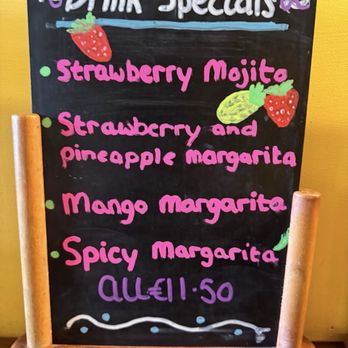 Drink Specials
Strawberry Mojito
Strawberry and
pineapple margarita
Mango margarita
Spicy Margarita
all €11.50